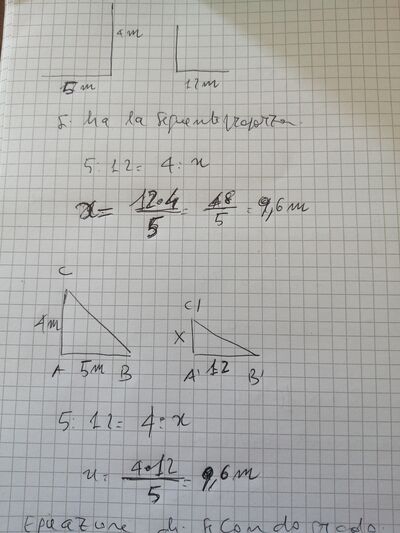 4m
5m 12m
Si ha la seguente proporzion.
5:12= 4:x
x= 12.4/5 = 48/5 = 9,6 m
C
C'
4m
X
A 5m B A' 12 B'
5:12= 4:x
x= 4.12/5 = 9,6 m
Equazione di secondo grado.